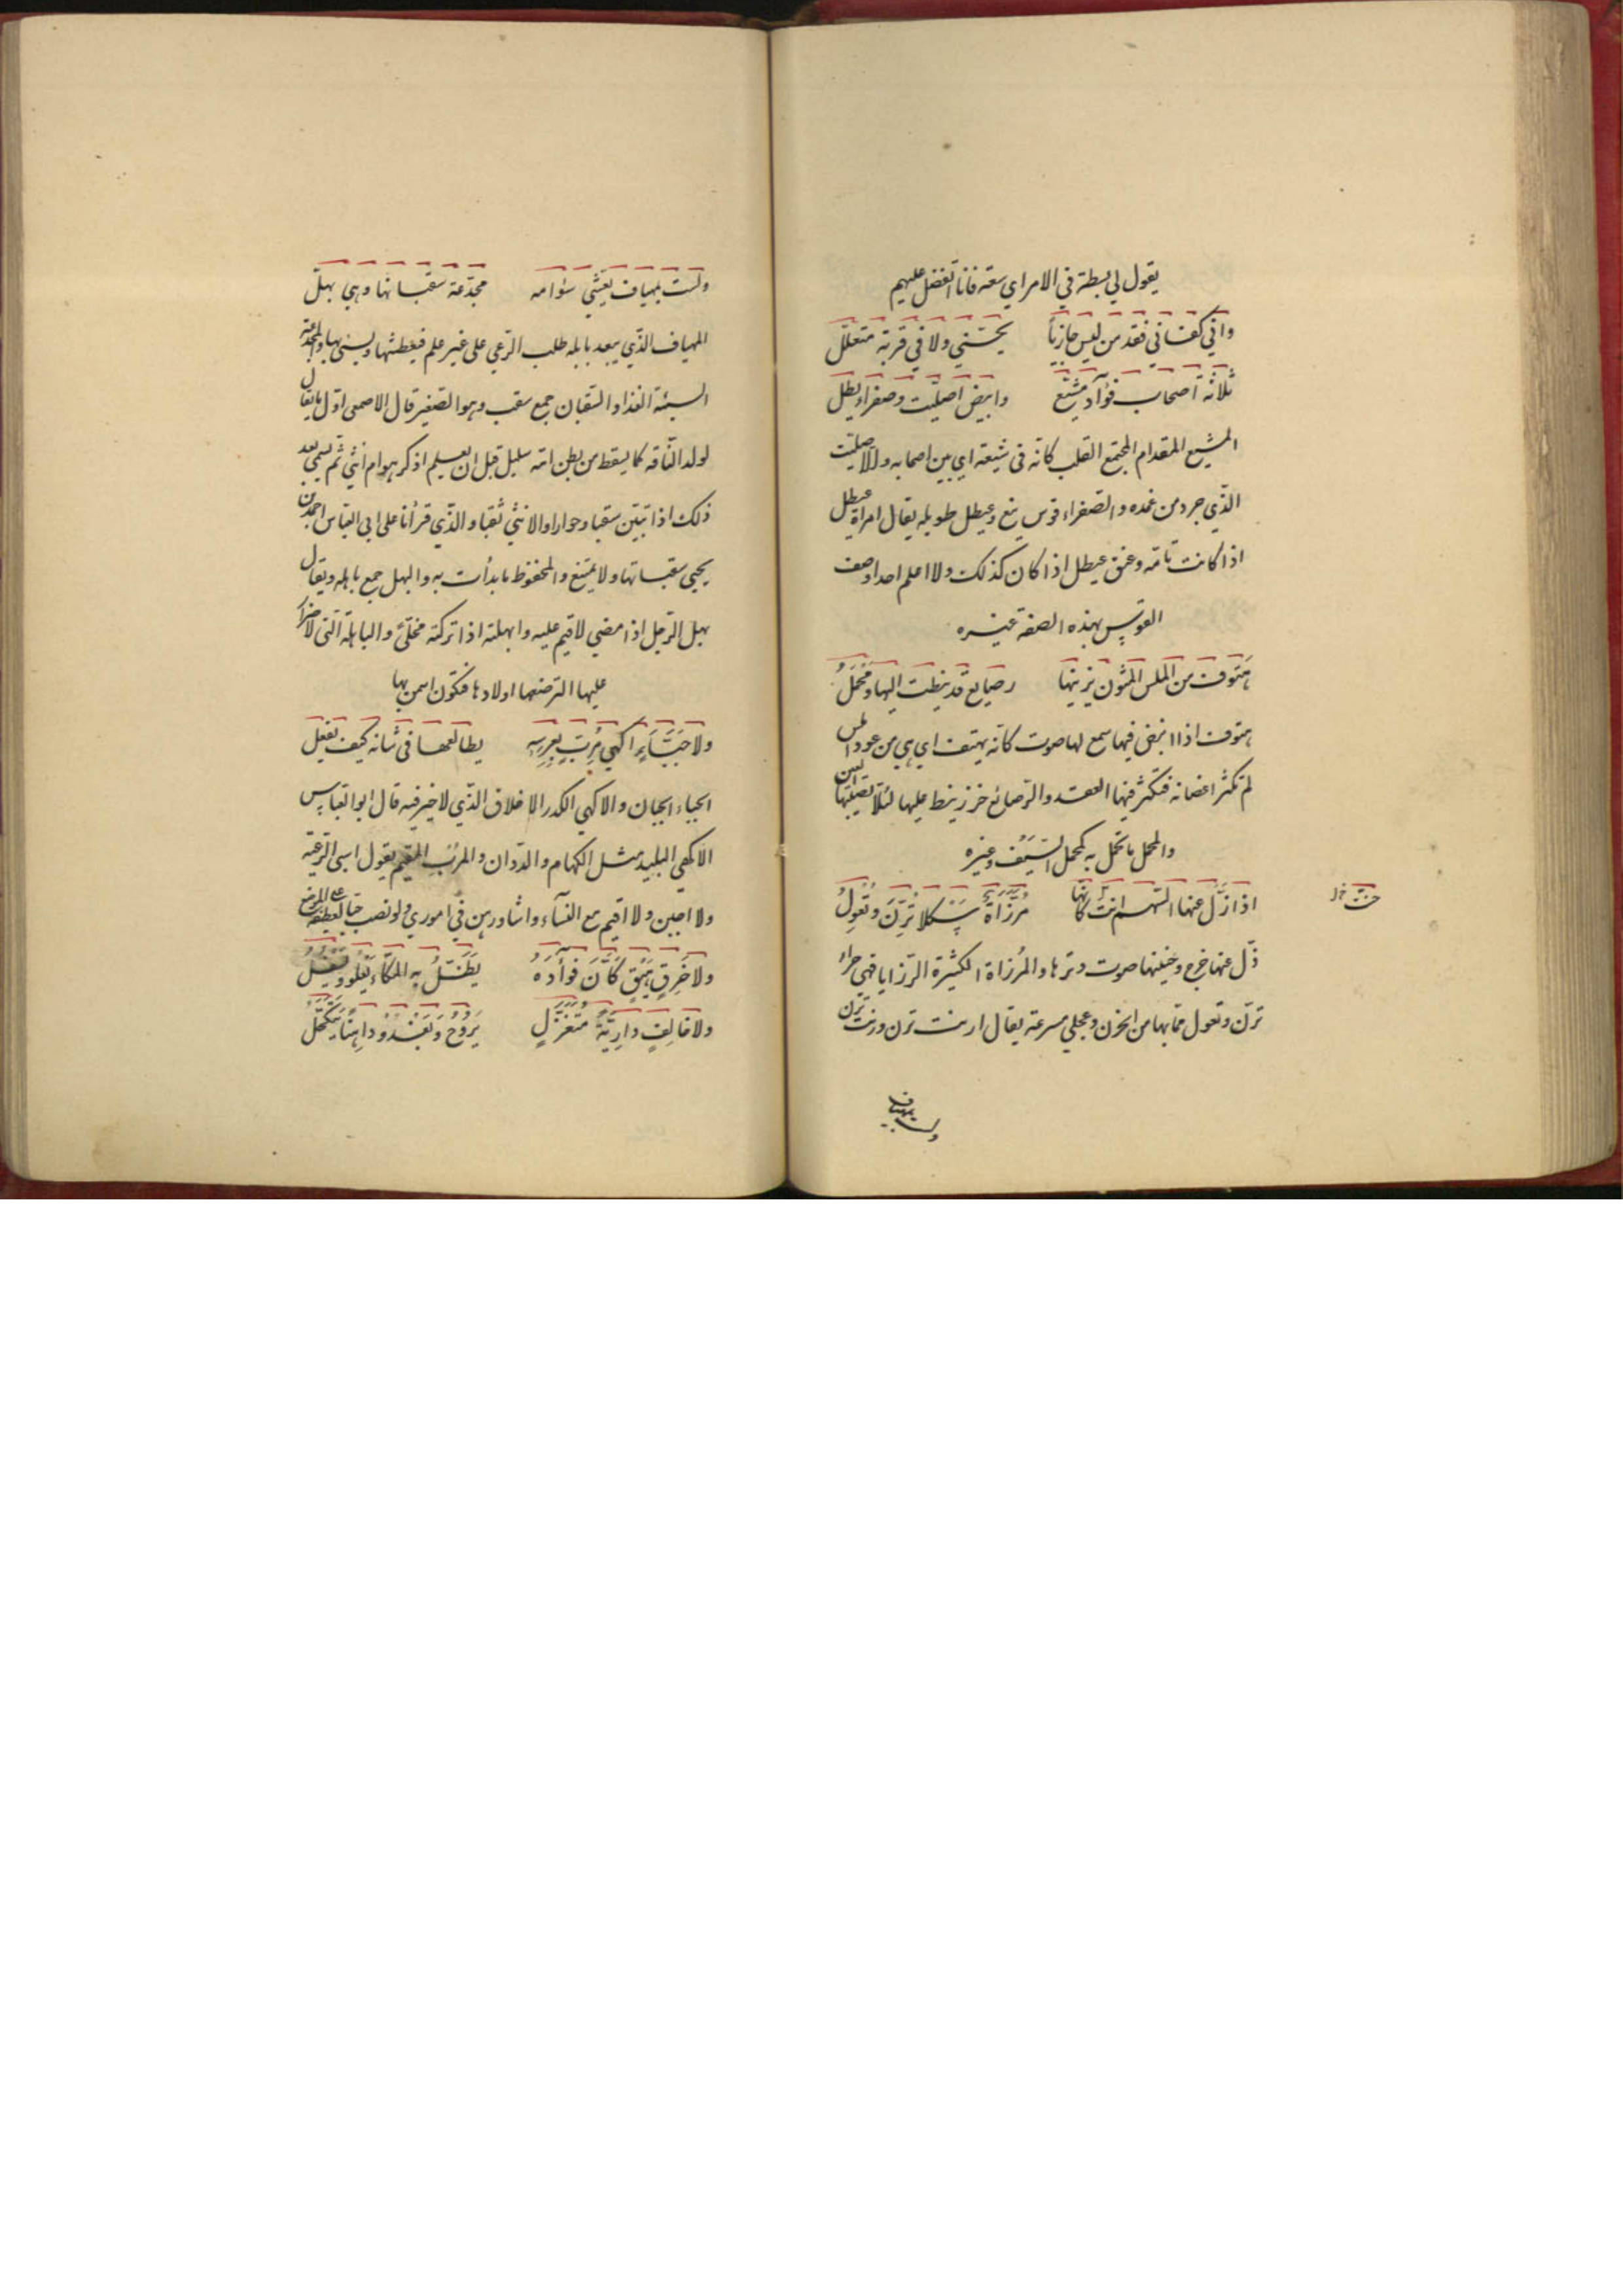 يقول لي بسطة في الامر اي سعة فانا اتفضل عليهم
واني كفاني فقد من ليس جازيا   بحسني ولا في قربه متعلل
ثلاثة اصحاب فؤاد مشيع   وابيض اصليت وصفراء عيطل
المشيع المقدام المجتمع القلب كانه في شيعة اي بين اصحابه والاصليت
الذي جرد من غمده والصفراء قوس نبع وعيطل طويله يقال امراة عيطل
اذا كانت تامه وعنق عيطل اذا كان كذلك ولا اعلم احدا وصف
القوس بهذه الصفة غيره
هتوف من الملس المتون يزينها   رصايع قد نيطت اليها ومحمل
هتوف اذا انبض فيها سمع لها صوت كانه يهتف اي هي من عود املس
لم تكثر اغصانه فتكثر فيها العقد والرصائع خرز ينط عليها لئلا تصيبها العين
والمحمل ما تحمل به كمحمل السيف وغيره
اذا زل عنها السهم انت كانها   مرزاة ثكلا ترن وتعول
حنت خ ل
زل عنها خرج وحنينها صوت وترها والمرزاة الكثيرة الرزايا فهي حراء
ترن وتعول مما بها من الحزن وعجلي مسرعة يقال ارنت ترن ورنت ترن
ولست بمهياف
ولست بمهياف يعشي سوامه   مجدعة سقبانها وهي بهل
المهياف الذي يبعد بابله طلب الرعي على غير علم فيعطشها ويسيء بها والمجدعة
السيئة الغذا والسقبان جمع سقب وهو الصغير قال الاصمعي اول ما يقال
لولد الناقه كما يسقط من بطن امه سليل قبل ان يعلم اذكر هو ام انثي ثم يسمي بعد
ذلك اذا تبين سقبا وحوارا والانثي ثقبا والذي قرأنا على ابي العباس احمد بن
يحيي سقباتها ولا يمتنع والمحفوظ ما بدأت به والبهل جمع باهله ويقال
بهل الرجل اذا مضي لا قيم عليه وابهلته اذا تركته مخلئ والباهلة التي لا ضرار
عليها الترضعها اولادها فتكون اسمن بها
ولا جباء اكهي مرب بعرسه   يطالعها في شانه كيف تفعل
الجباء الجبان والاكهي الكدر الاخلاق الذي لا خير فيه قال ابو العباس
الاكهي البليد مثل الكهام والددان والمرب المقيم يقول اسي الرعية
ولا اجبن ولا اقيم مع النسآء واشاورهن في اموري ولو نصب جبا لعطفه على الموضع
ولا خرق هيق كأن فؤاده   يظل به المكاء يعلو ويسفل
ولا خالف دارية متغزل   يروح ويغدو داهنا يتكحل